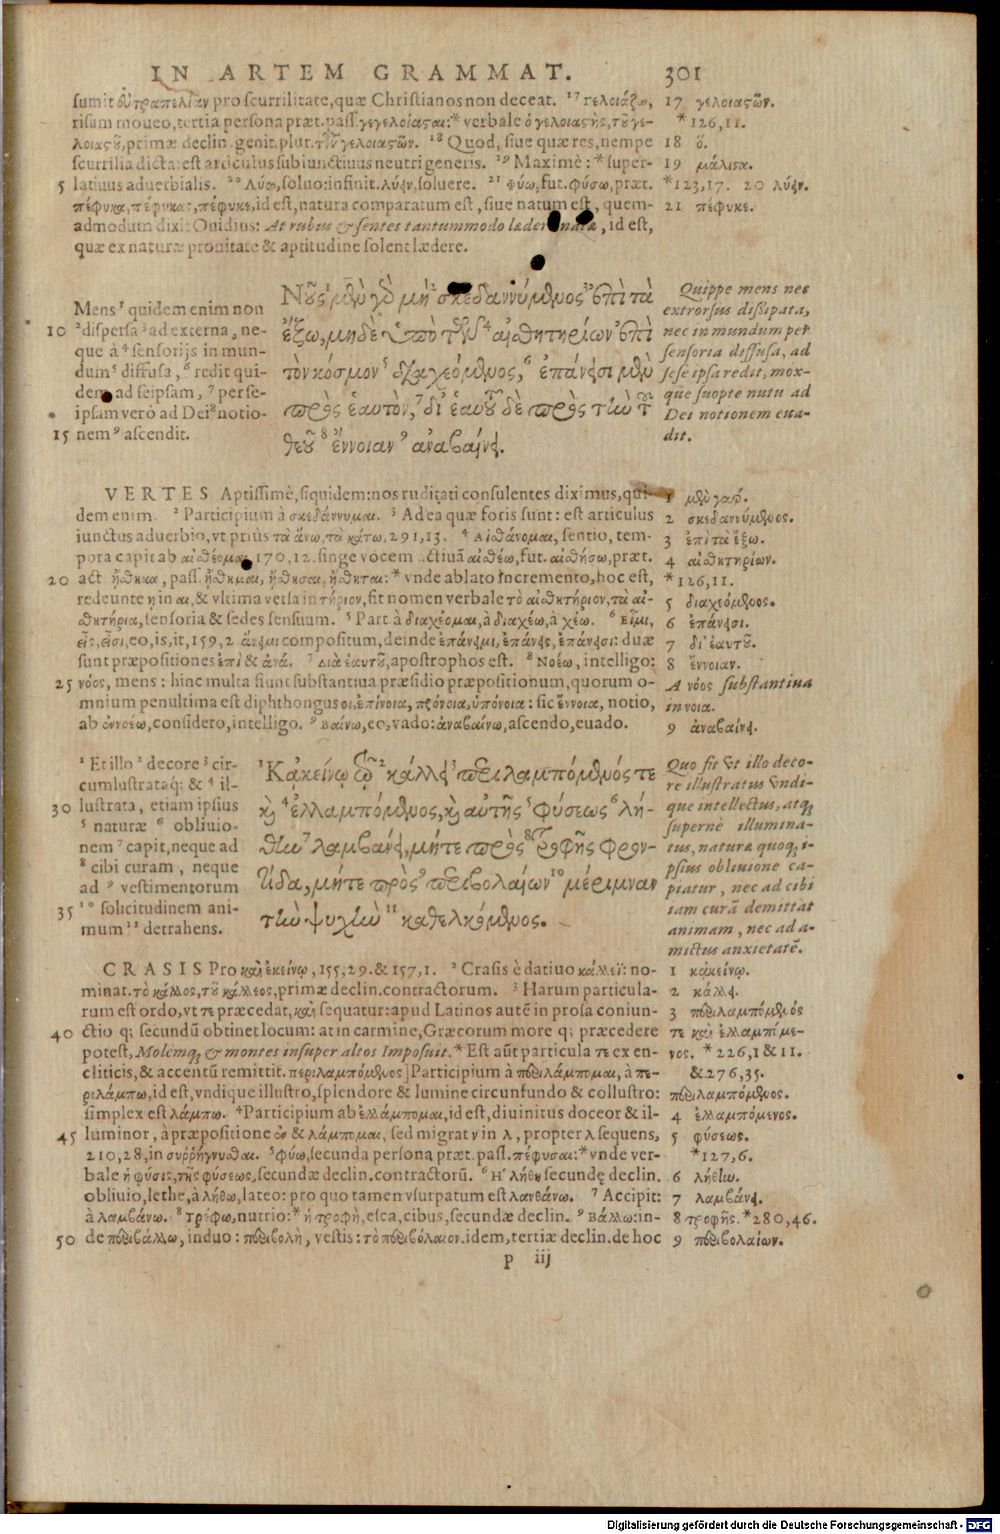 IN ARTEM GRAMMAT. 301
sumit εὐτραπελίαν pro scurrilitate, quæ Christianos non deceat. 17 Γελοιάζω,
risum moueo, tertia persona præt. pass. γεγελοίασαι: * verbale ὁ γελοιαςὴς, τοῦ γε-
λοιαςοῦ, primæ declin. genit. plur. τῶν γελοιαςῶν. 18 Quod, siue quæ res, nempe
scurrilia dicta: est articulus subiunctiuus neutri generis. 19 Maximè: * super-
5 latiuus aduerbialis. 20 Λύω, soluo: infinit. λύειν, soluere. 21 Φύω, fut. φύσω, præt.
πέφυκα, πέφυκας, πέφυκε, id est, natura comparatum est, siue natum est, quem-
admodum dixit Ouidius: At rubus & sentes tantummodo lædere nata, id est,
quæ ex naturæ pronitate & aptitudine solent lædere.
17 γελοιαςῶν.
* 126, 11.
18 ὅ.
19 μάλιςα.
* 123, 17. 20 λύειν.
21 πέφυκε.
Mens 1 quidem enim non
10 2 dispersa 3 ad externa, ne-
que à 4 sensorijs in mun-
dum 5 diffusa, 6 redit qui-
dem ad seipsam, 7 per se-
ipsam verò ad Dei 8 notio-
15 nem 9 ascendit.
Νοῦς 1 μὲν γὸ μὴ 2 σκεδαννύμενος 3 ἐπὶ τὰ
ἔξω, μηδὲ ὑπὸ τῶν 4 αἰσθητηρίων ἐπὶ
τὸν κόσμον 5 διαχεόμενος, 6 ἐπάνεισι μὲν
πρὸς ἑαυτὸν, 7 δι᾽ ἑαυτοῦ δὲ πρὸς τὴν τοῦ
θεοῦ 8 ἔννοιαν 9 ἀναβαίνει.
Quippe mens nec
extrorsus dissipata,
nec in mundum per
sensoria diffusa, ad
sese ipsa redit, mox-
que suopte nutu ad
Dei notionem eua-
dit.
VERTES Aptissimè, siquidem: nos ruditati consulentes diximus, qui-
dem enim. 2 Participium à σκεδάννυμαι. 3 Ad ea quæ foris sunt: est articulus
iunctus aduerbio, vt prius τὰ ἄνω, τὰ κάτω, 291, 13. 4 Αἰσθάνομαι, sentio, tem-
pora capit ab αἰσθέομαι, 170, 12. finge vocem ctiuã αἰσθέω, fut. αἰσθήσω, præt.
20 act ᾔσθηκα, pass. ᾔσθημαι, ᾔσθησαι, ᾔσθηται: * vnde ablato incremento, hoc est,
redeunte η in αι, & vltima versa in τήριον, fit nomen verbale τὸ αἰσθητήριον, τὰ αἰ-
σθητήρια, sensoria & sedes sensuum. 5 Part. à διαχέομαι, à διαχέω, à χέω. 6 Εἶμι,
εἶς, εἶσι, eo, is, it, 159, 2 ἄνειμι compositum, deinde ἐπάνειμι, ἐπάνεις, ἐπάνεισι: duæ
sunt præpositiones ἐπὶ & ἀνά. 7 Διὰ ἑαυτοῦ, apostrophos est. 8 Νοέω, intelligo:
25 νόος, mens: hinc multa fiunt substantiua præsidio præpositionum, quorum o-
mnium penultima est diphthongus οι, ἐπίνοια, πρόνοια, ὑπόνοια: sic ἔννοια, notio,
ab ἐννοέω, considero, intelligo. 9 Βαίνω, eo, vado: ἀναβαίνω, ascendo, euado.
1 μὲν γάρ.
2 σκεδαννύμενος.
3 ἐπὶ τὰ ἔξω.
4 αἰσθητηρίων.
* 126, 11.
5 διαχεόμενος.
6 ἐπάνεισι.
7 δι᾽ ἑαυτοῦ.
8 ἔννοιαν.
A νόος substantiua
in νοια.
9 ἀναβαίνει.
1 Et illo 2 decore 3 cir-
cumlustrataq́; & 4 il-
30 lustrata, etiam ipsius
5 naturæ 6 obliuio-
nem 7 capit, neque ad
8 cibi curam, neque
ad 9 vestimentorum
35 10 solicitudinem ani-
mum 11 detrahens.
1 Κἀκείνῳ τῷ 2 κάλλει 3 περιλαμπόμενός τε
καὶ 4 ἐλλαμπόμενος, καὶ αὐτῆς 5 φύσεως 6 λή-
θην 7 λαμβάνει, μήτε πρὸς 8 τροφῆς φρον-
τίδα, μήτε πρὸς 9 περιβολαίων 10 μέριμναν
τὴν ψυχὴν 11 καθελκόμενος.
Quo fit vt illo deco-
re illustratus vndi-
que intellectus, atq;
supernè illumina-
tus, naturæ quoq; i-
psius obliuione ca-
piatur, nec ad cibi
iam curã demittat
animam, nec ad a-
mictus anxietatẽ.
CRASIS Pro καὶ ἐκείνῳ, 155, 29. & 157, 1. 2 Crasis è datiuo κάλλεϊ: no-
minat. τὸ κάλλος, τοῦ κάλλεος, primæ declin. contractorum. 3 Harum particula-
rum est ordo, vt τε præcedat, καὶ sequatur: apud Latinos autẽ in prosa coniun-
40 ctio q; secundũ obtinet locum: at in carmine, Græcorum more q; præcedere
potest, Molemq; & montes insuper altos Imposuit. * Est aũt particula τε ex en-
cliticis, & accentũ remittit. περιλαμπόμενος] Participium à περιλάμπομαι, à πε-
ριλάμπω, id est, vndique illustro, splendore & lumine circunfundo & collustro:
simplex est λάμπω. 4 Participium ab ἐλλάμπομαι, id est, diuinitus doceor & il-
45 luminor, à præpositione ἐν & λάμπομαι, sed migrat ν in λ, propter λ sequens,
210, 28, in συῤῥήγνυσθαι. 5 Φύω, secunda persona præt. pass. πέφυσαι: * vnde ver-
bale ἡ φύσις, τῆς φύσεως, secundæ declin. contractorũ. 6 Ἡ λήθη secundę declin.
obliuio, lethe, à λήθω, lateo: pro quo tamen vsurpatum est λανθάνω. 7 Accipit:
à λαμβάνω. 8 Τρέφω, nutrio: * ἡ τροφὴ, esca, cibus, secundæ declin. 9 Βάλλω: in-
50 de περιβάλλω, induo: περιβολὴ, vestis: τὸ περιβόλαιον. idem, tertiæ declin. de hoc
1 κἀκείνῳ.
2 κάλλει.
3 περιλαμπόμενός
τε καὶ ἐλλαμπόμε-
νος. * 226, 1 & 11.
& 276, 35.
περιλαμπόμενος.
4 ἐλλαμπόμενος.
5 φύσεως.
* 127, 6.
6 λήθην.
7 λαμβάνει.
8 τροφῆς. * 280, 46.
9 περιβολαίων.
p iij
Digitalisierung gefördert durch die Deutsche Forschungsgemeinschaft - DFG